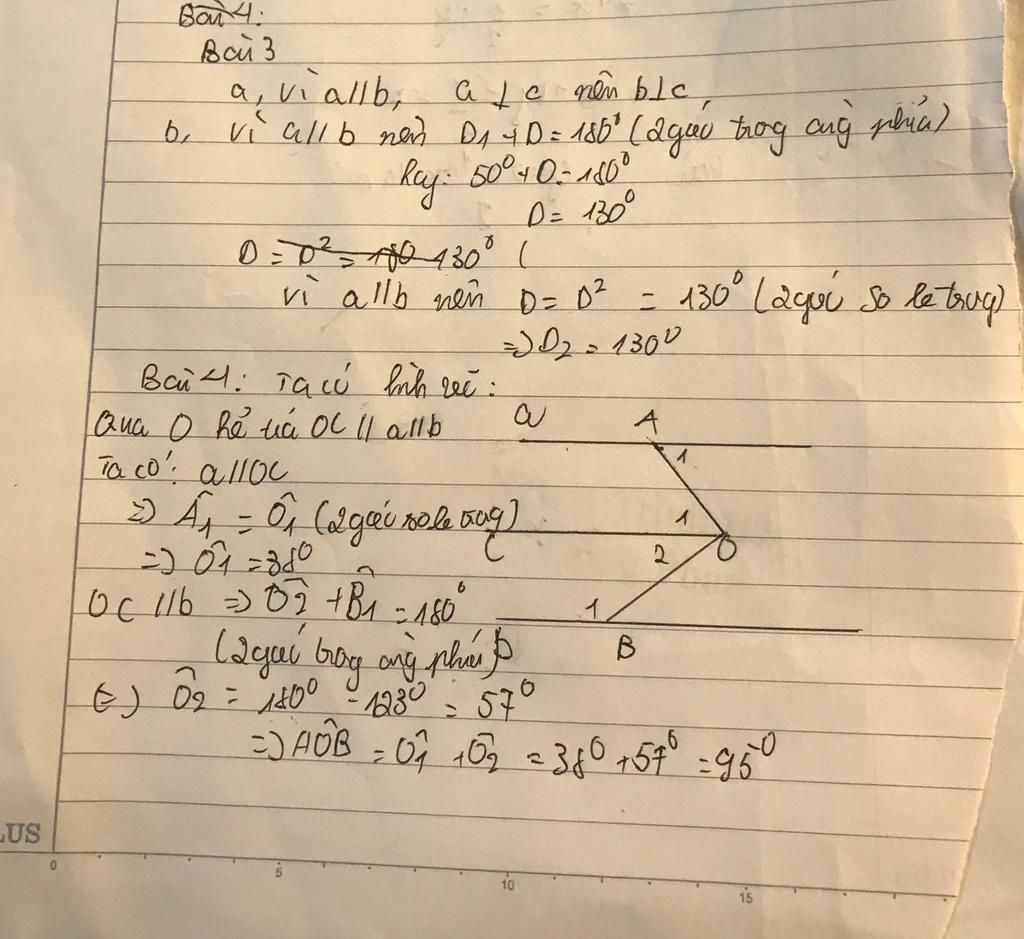 Bài 4:
Bài 3
a, vì a//b, a ⊥ c nên b⊥c
b, vì a//b nên D1 + D = 180° (2 góc trog cùng phía)
Hay: 50° + D = 180°
D = 130°
D = D² = 180 130° (
vì a//b nên D = D² = 130° (2 góc so le trog)
=> D2 = 130°
Bài 4: Ta có hình vẽ:
Qua O kẻ tia OC // a//b
Ta có: a//OC
=> Â1 = Ô1 (2 góc so le trog)
=> Ô1 = 38°
OC //b => Ô2 + B̂1 = 180°
(2 góc trog cùng phía)
Ô2 = 180° - 123° = 57°
=> AÔB = Ô1 + Ô2 = 38° + 57° = 95°
a A
1
1
C 2 O
1
b B
LUS
0 5 10 15